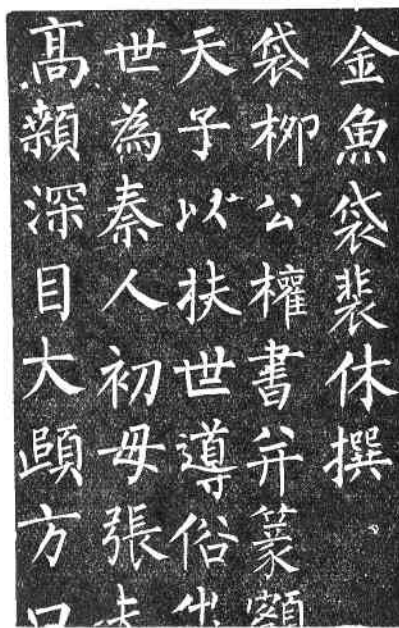 金魚袋裴休撰
袋柳公權書并篆額
天子以扶世導俗出
世為秦人初母張夫
高顙深目大頤方口